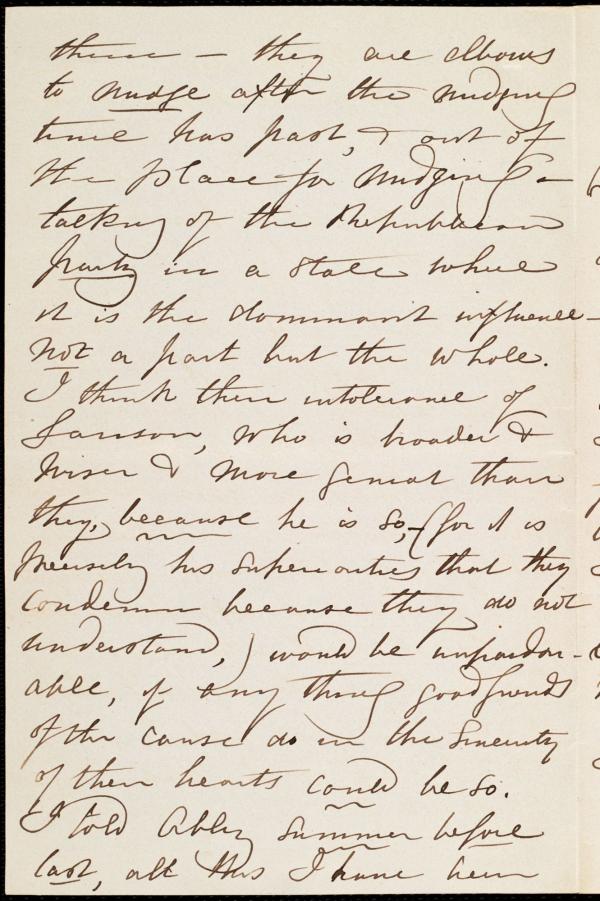 them — they are elbows
to nudge after the nudging
time has past, & out of
the place for nudging —
talking of the Republican
party in a state where
it is the dominant influence —
not a part but the whole.
I think their intolerance of
Garrison, who is broader &
wiser & more genial than
they, because he is so, — (for it is
precisely his superiorities that they
condemn because they do not
understand,) would be unpardon-
able, if any thing good friends
of the cause do in the sincerity
of their hearts could be so.
I told Abby summer before
last, all this I have been